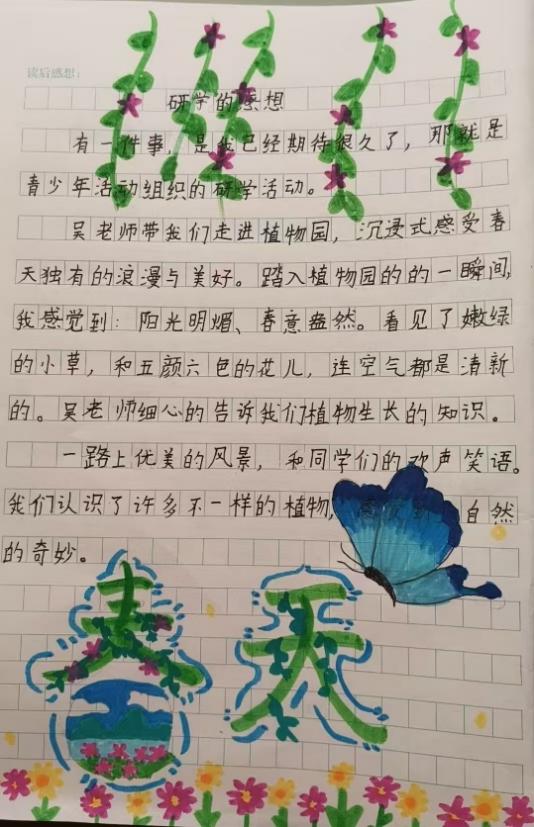 读后感想:
研学的感想
有一件事，是我已经期待很久了，那就是
青少年活动组织的研学活动。
吴老师带我们走进植物园，沉浸式感受春
天独有的浪漫与美好。踏入植物园的的一瞬间，
我感觉到：阳光明媚、春意盎然。看见了嫩绿
的小草，和五颜六色的花儿，连空气都是清新
的。吴老师细心的告诉我们植物生长的知识。
一路上优美的风景，和同学们的欢声笑语。
我们认识了许多不一样的植物，自然
的奇妙。
春天